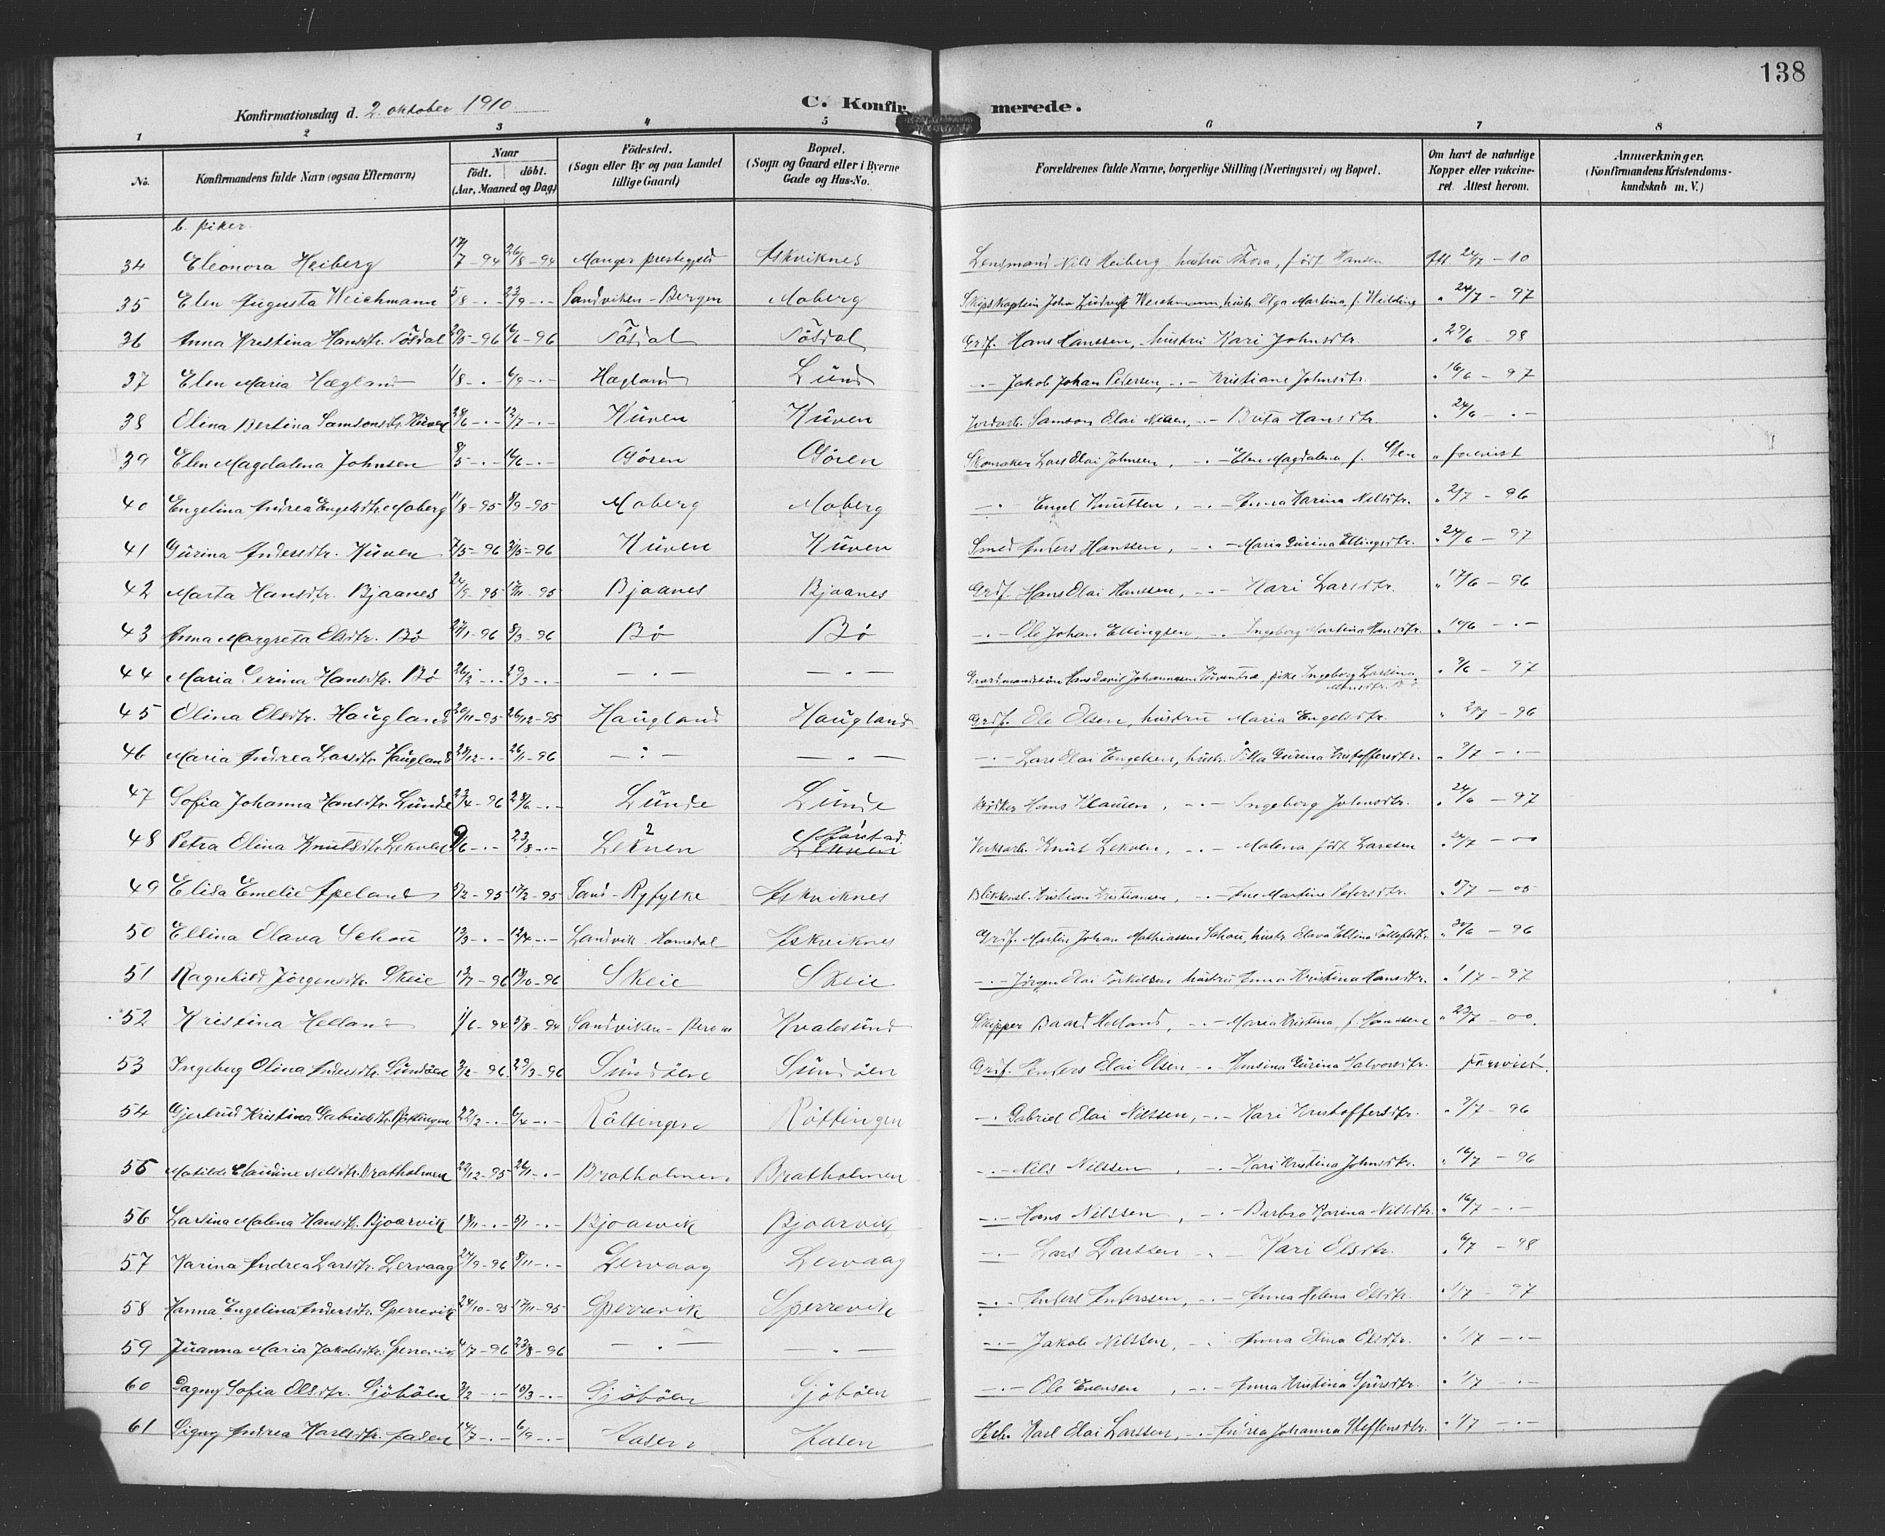 138
Konfirmationsdag d. 2. oktober 1910 C. Konfirmerede.
1 2 3 4 5 6 7 8
No. Konfirmandens fulde Navn (ogsaa Efternavn) Naar födt. döbt. (Aar, Maaned og Dag) Födested. (Sogn eller By og paa Landet tillige Gaard) Bopæl. (Sogn og Gaard eller i Byerne Gade og Hus-No. Forældrenes fulde Navne, borgerlige Stilling (Næringsvei) og Bopæl. Om havt de naturlige Kopper eller vakcineret. Attest herom. Anmærkninger. (Konfirmandens Kristendomskundskab m. V.)
b. piker.
34 Eleonora Heiberg 17/7-94 26/8-94 Manger prestegjeld Askviknes Lensmand Nils Heiberg, hustru Thora, født Hansen Att 24/7-10
35 Elen Augusta Weichmann 5/8-.- 23/9-.- Sandviken-Bergen Moberg Skipskaptein John Ludvig Weichmann, hustr. Olga Martina, f. Wilding " 24/7-97
36 Anna Kristina Hansdtr. Tøsdal Tøsdal Tøsdal Grdf. Hans Hanssen, hustru Kari Johnsdtr. " 29/6-98
37 Elen Maria Hægland 1/8-.- 6/9-.- Hægland Lund -.- Jakob Johan Petersen, -.- Kristiane Johnsdtr. " 16/6-97
38 Elina Bertina Samsonsdtr. Kuven 28/6-.- 12/7-.- Kuven Kuven Samson Elai Nilsen, -.- Brita Hansdtr. " 24/6-.-
39 Elen Magdalena Johnsen 8/5-.- Søren Søren Skomaker Lars Elai Johnsen, -.- Elen Magdalena, f. " forevist
40 Engelina Andrea Engelsdtr. Moberg 11/8-95 8/9-95 Moberg Moberg -.- Engel Knutsen, -.- Anna Karina Nilsdtr. " 2/7-96
41 Gurina Andersdtr. Kuven 7/5-96 31/5-96 Kuven Kuven Smed Anders Hanssen, -.- Maria Gurina Ellingsdtr. " 24/6-97
42 Marta Hansdtr. Bjaanes 24/9-95 17/11-95 Bjaanes Bjaanes Grdf. Hans Elai Hanssen, -.- Kari Larsdtr. " 17/6-96
43 Anna Margreta Olsdtr. Bø 27/1-96 8/3-96 Bø Bø -.- Ole Johan Ellingsen, -.- Ingeborg Martina Hansdtr. " 16/6-.-
44 Maria Serina Hansdtr. Bø 26/2-.- 29/3-.- -.- -.- Gaardmandssøn Hans David Johannessen Kuventræ, pike Ingeborg Larsina " 9/6-97
45 Olina Olsdtr. Haugland 20/11-95 26/12-95 Haugland Haugland Grdf. Ole Olsen, hustru Maria Engelsdtr. " 2/7-96
46 Maria Andrea Larsdtr. Haugland 28/12-.- 26/1-96 -.- -.- -.- Lars Elai Engelsen, hustr. Gurina Kristoffersdtr. " 9/7-.-
47 Sofia Johanna Hansdtr. Lunde 23/4-96 28/6-.- Lunde Lunde Bødker Hans Klausen, -.- Ingeborg Johnsdtr. " 24/6-97
48 Petra Olina Knutsdtr. Lekven 9/6-.- 23/8-.- Lekven Lekven Verksarb. Knut Lekven, -.- Malena født Larssen " 24/7-00
49 Elida Emelie Apeland 5/2-95 17/2-95 Sand-Ryfylke Askviknes Blikkensl. Kristian Kristiansen, -.- Ane Martine Petersdtr. " 5/7-05
50 Ellina Olava Schou 13/3-.- 13/4-.- Landvik-Homedal Askviknes Grdf. Martin Johan Mathiassen Schou, hustr. Olava Ellina " 30/6-96
51 Ragnhild Jørgensdtr. Skeie 13/7-96 18/10-96 Skeie Skeie -.- Jørgen Elai Torkilsen, hustru Anna Kristina Hansdtr. " 1/7-97
52 Kristina Helland 1/6-94 5/8-94 Sandviken-Bergen Kvalesund Skipper Baard Helland, -.- Maria Kristina, f. Hanssen " 23/7-00.
53 Ingeborg Olina Andersdtr. Sundøen 3/2-96 29/3-96 Sundøen Sundøen Grdf. Anders Elai Olsen, -.- Ansina Gurina Halvorsdtr. forevist.
54 Gjertrud Kristina Gabrielsdtr. Røttingen 22/2-.- 6/4-.- Røttingen Røttingen -.- Gabriel Elai Nilssen, -.- Kari Kristoffersdtr. " 9/7-96
55 Matilde Nilsdtr. Bratholmen 22/12-95 26/1-.- Bratholmen Bratholmen -.- Nils Nilssen, -.- Kari Kristina Johnsdtr. " 16/7-96
56 Larsina Malena Hansdtr. Bjoarvik Bjoarvik Bjoarvik -.- Hans Nilssen, -.- Barbro Karina Nilsdtr. " 16/7-.-
57 Karina Andrea Larsdtr. Lervaag 27/9-96 8/11-.- Lervaag Lervaag -.- Lars Larssen -.- Kari Olsdtr. " 6/7-98
58 Hanna Engelina Andersdtr. Sperrevik 24/10-95 17/11-95 Sperrevik Sperrevik -.- Anders Anderssen, -.- Anna Helena Olsdtr. " 1/7-97
59 Juanna Maria Jakobsdtr. Sperrevik 4/7-96 23/8-96 -.- -.- -.- Jakob Nilssen, -.- Anna Olina Olsdtr. " 1/7-.-
60 Dagny Sofia Olsdtr. Sjøbøen 3/2-.- 15/3-.- Sjøbøen Sjøbøen -.- Ole Evensen, -.- Anna Kristina Sjursdtr. " 1/7-.-
61 Signy Andrea Karlsdtr. Aasen 17/7-.- 6/9-.- Aasen Aasen Karl Elai Larssen, -.- Andrea Johanna Steffensdtr. " 1/7-.-